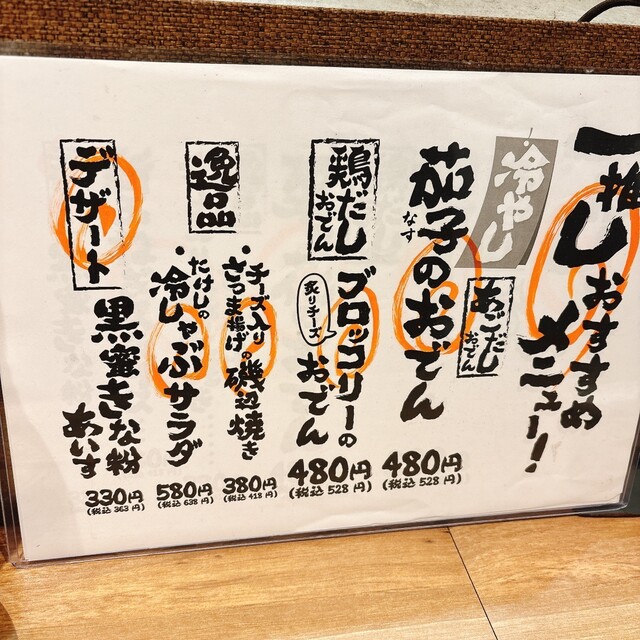 一推し
おすすめ
メニュー！
・冷やし
あごだし
おでん
茄子のおでん
なす
480円
(税込 528円)
鶏だし
おでん
ブロッコリーの
炙りチーズ
おでん
480円
(税込 528円)
逸品
チーズ入り
さつま揚げの磯辺焼き
380円
(税込 418円)
たけしの
・冷しゃぶサラダ
580円
(税込 638円)
デザート
黒蜜きな粉
あいす
330円
(税込 363円)